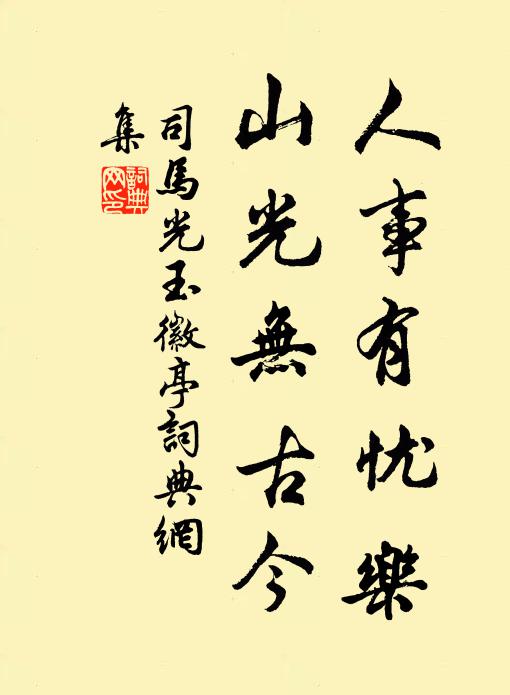 人事有忧樂
山光無古今
司馬光玉徽亭詞典網
集
詞典網印